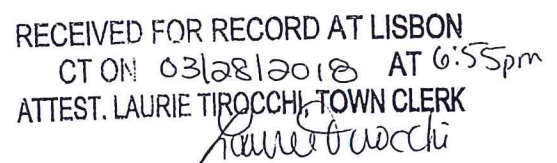 RECEIVED FOR RECORD AT LISBON
CT ON 03/28/2018 AT 6:55pm
ATTEST. LAURIE TIROCCHI, TOWN CLERK
Laurie Tirocchi